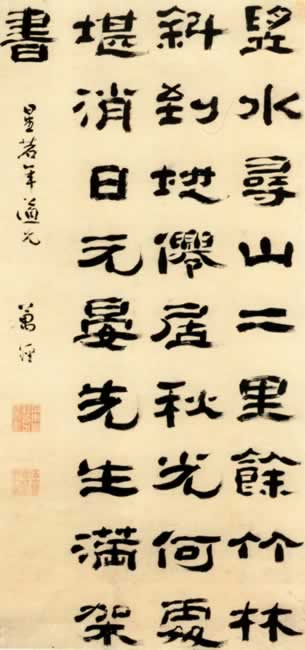 望水尋山二里餘竹林
斜到地僊居秋光何處
堪消日元晏先生滿架
書
星若年道兄
萬經